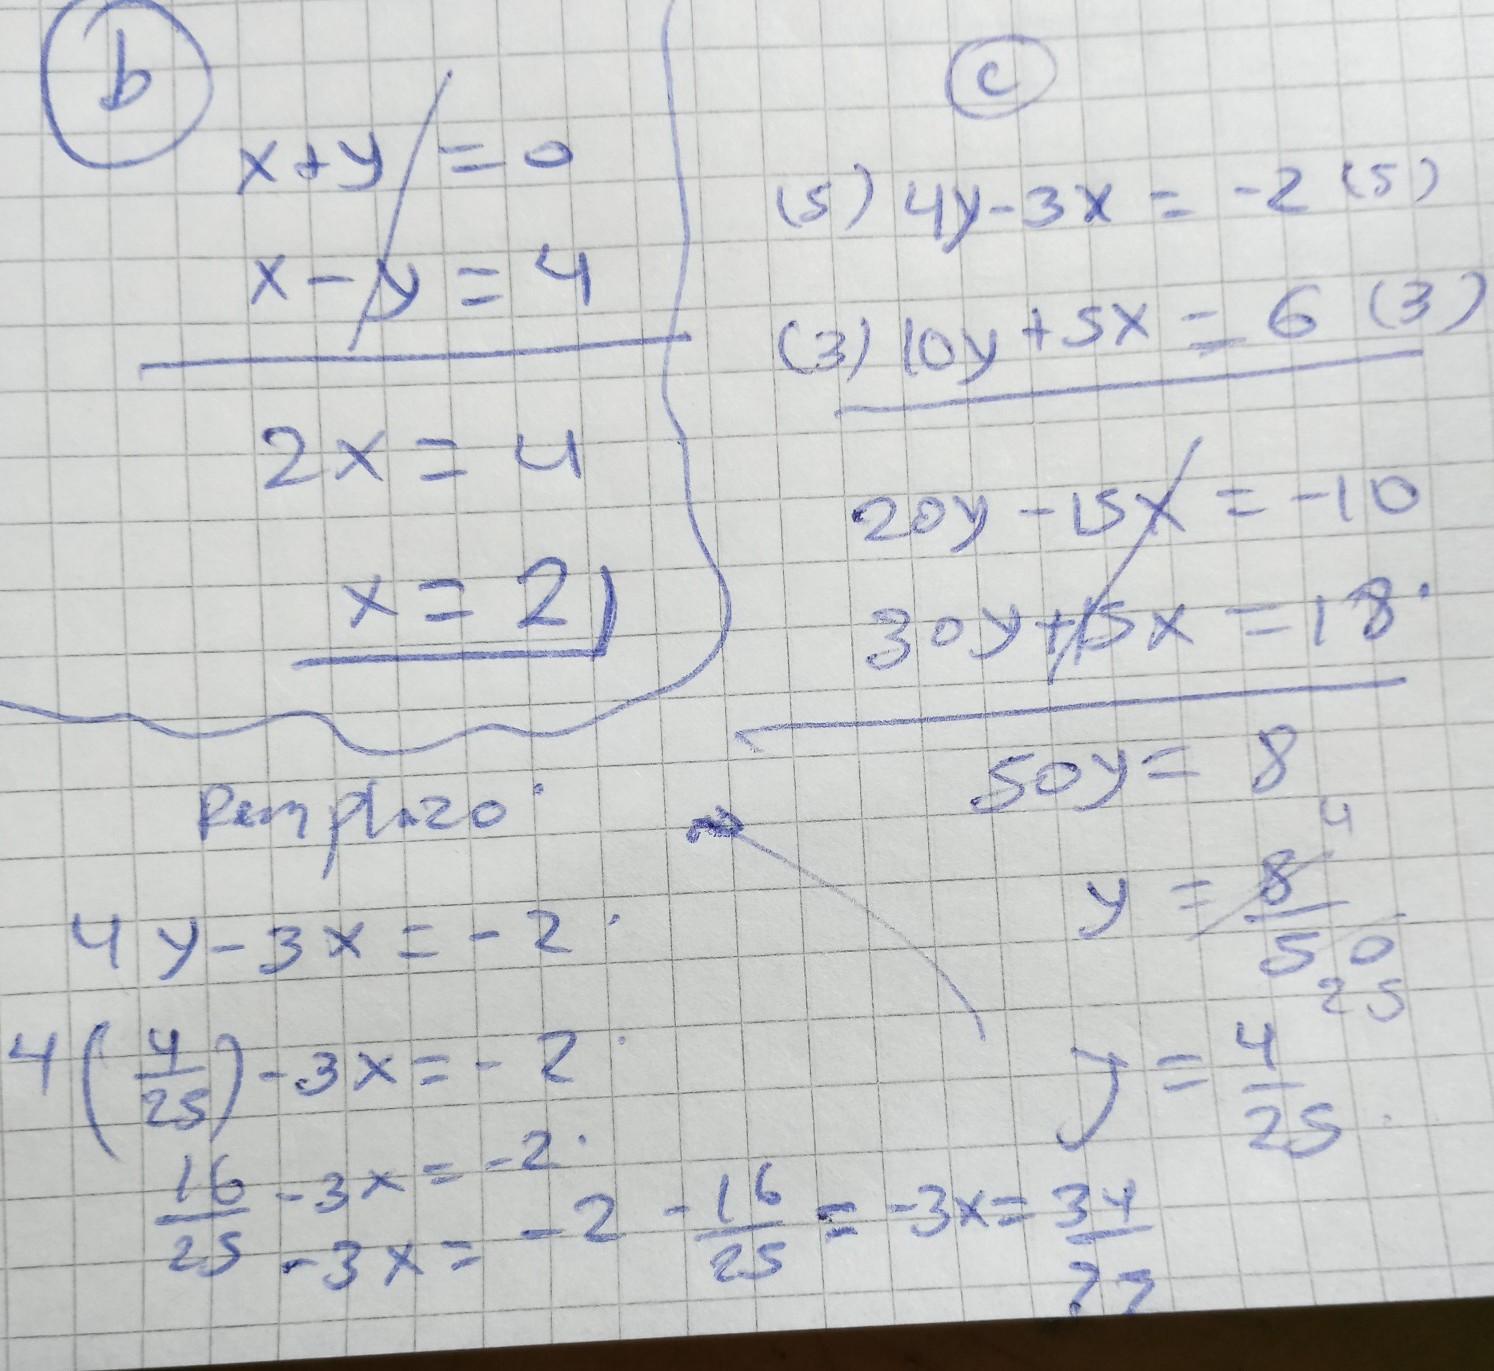 b
x+y=0
x-y=4
2x=4
x=2
c
(5) 4y-3x=-2 (5)
(3) 10y+5x=6 (3)
20y-15x=-10
30y+15x=18
50y=8
y=8/50 4 25
y=4/25
Remplazo
4y-3x=-2
4(4/25)-3x=-2
16/25-3x=-2
-3x=-2-16/25=-3x=